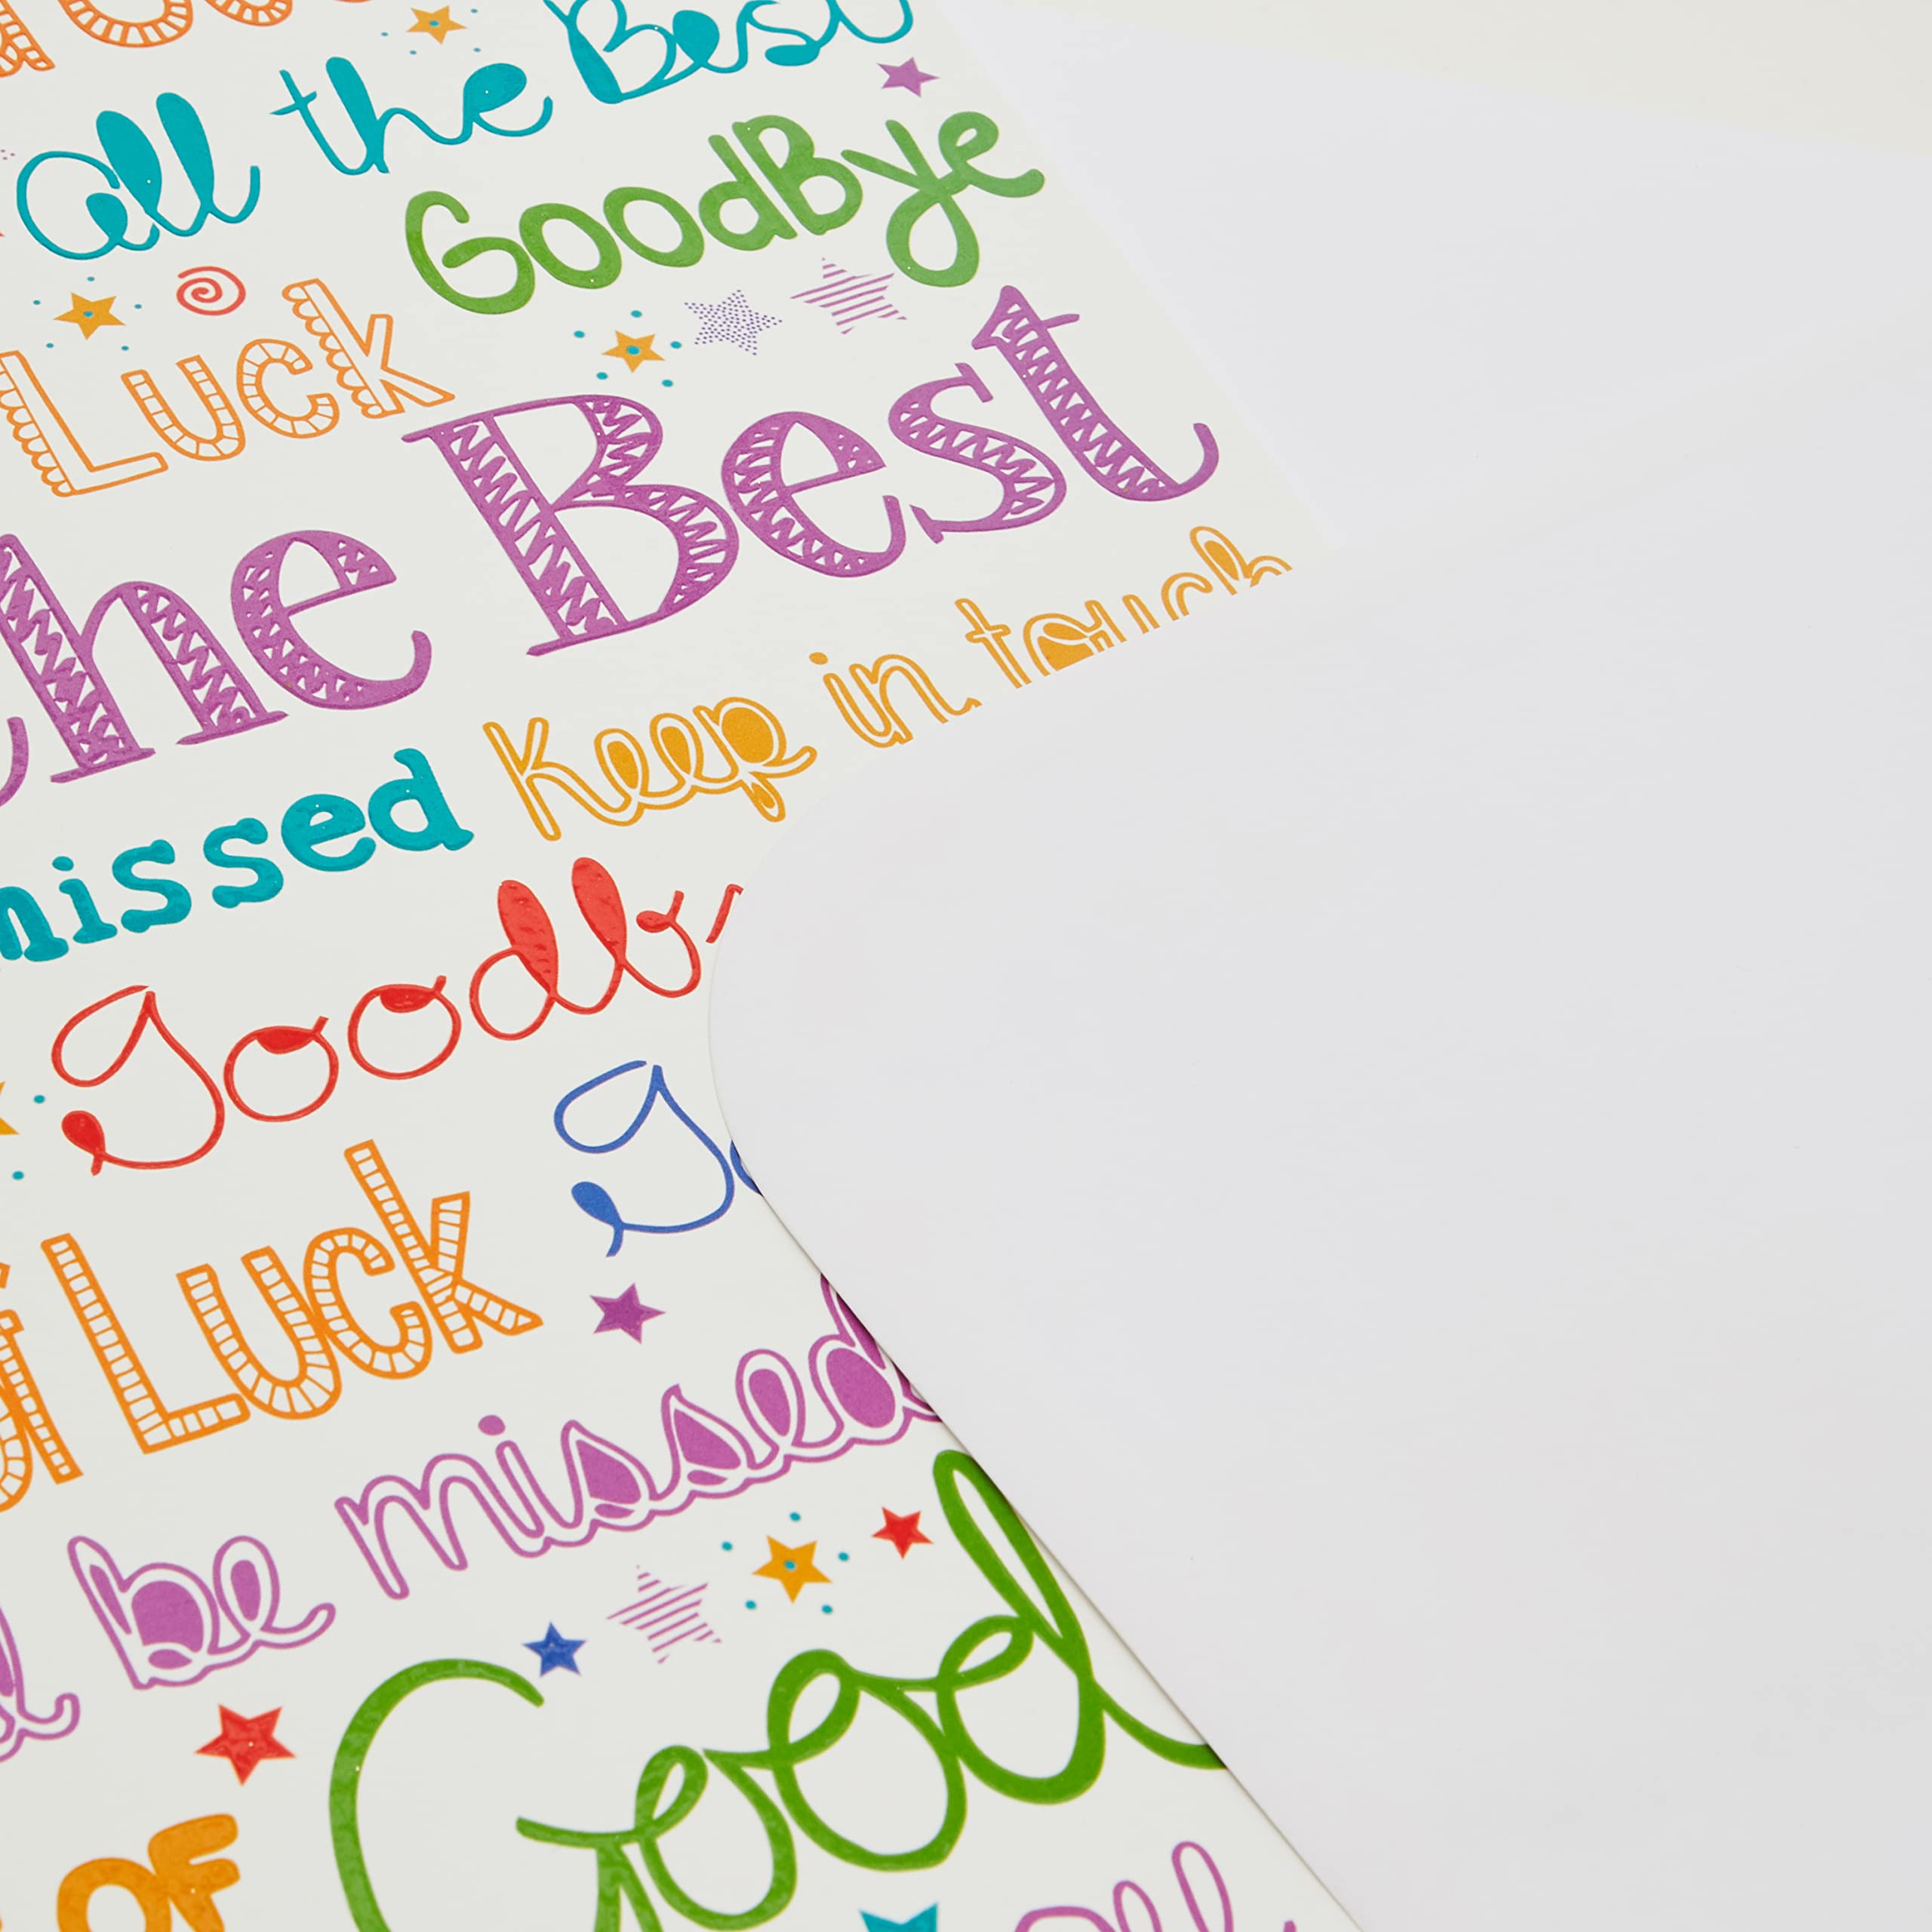 all the Best
GoodBye
Luck
the Best
missed Keep in touch
goodb
Luck
be missed
OF Good